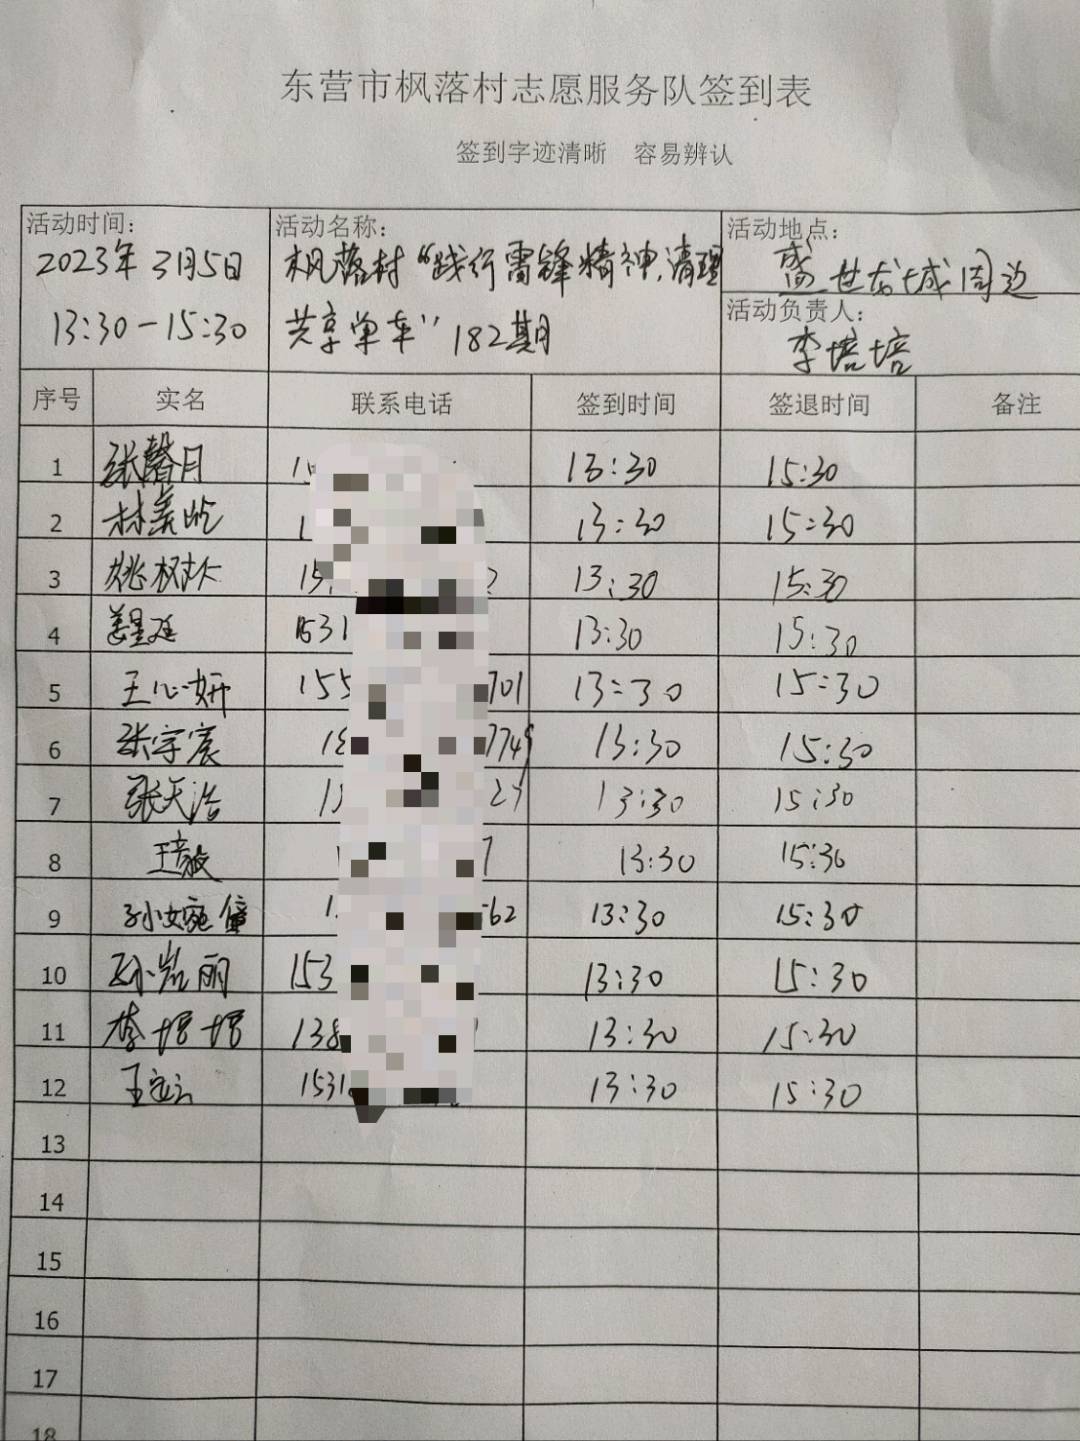 东营市枫落村志愿服务队签到表
签到字迹清晰 容易辨认
活动时间:
2023年3月5日
13:30-15:30
活动名称:
枫落村“践行雷锋精神,清理
共享单车”182期
活动地点:
盛世龙城周边
活动负责人:
李培培
序号 实名 联系电话 签到时间 签退时间 备注
1 张馨月 13:30 15:30
2 林 屹 13:30 15:30
3 姚树 15 2 13:30 15:30
4 姜星廷 1531 13:30 15:30
5 王心妍 155 701 13:30 15:30
6 张宇宸 18 7749 13:30 15:30
7 张天浩 13:30 15:30
8 王毅 7 13:30 15:30
9 孙婉 562 13:30 15:30
10 孙岩丽 153 13:30 15:30
11 李培培 138 13:30 15:30
12 王 1531 13:30 15:30
13
14
15
16
17
18